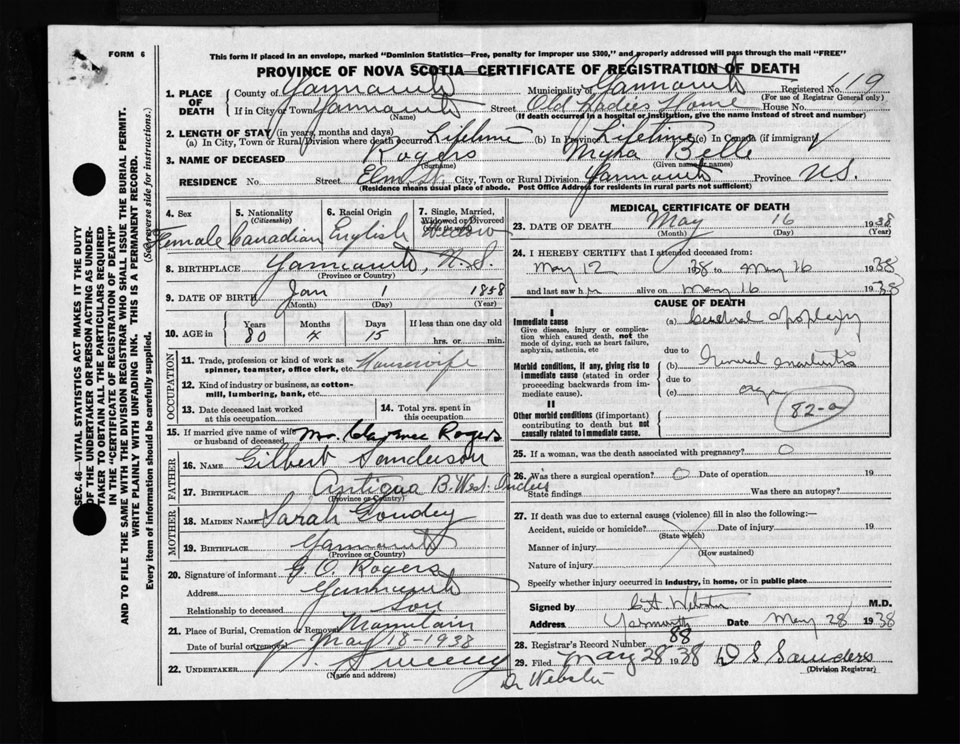 FORM 6
This form if placed in an envelope, marked "Dominion Statistics—Free, penalty for improper use $300," and properly addressed will pass through the mail "FREE"
PROVINCE OF NOVA SCOTIA—CERTIFICATE OF REGISTRATION OF DEATH
1. PLACE OF DEATH
County of Yarmouth Municipality of Yarmouth Registered No. 119
(For use of Registrar General only)
If in City or Town Yarmouth Street Old Ladies Home House No.
(Name) (If death occurred in a hospital or institution, give the name instead of street and number)
2. LENGTH OF STAY (in years, months and days)
(a) In City, Town or Rural Division where death occurred Lifetime (b) In Province Lifetime (c) In Canada (if immigrant)
3. NAME OF DECEASED Rogers Myra Belle
(Surname) (Given name or names)
RESIDENCE No. Street Elm St. City, Town or Rural Division Yarmouth Province N.S.
(Residence means usual place of abode. Post Office Address for residents in rural parts not sufficient)
4. Sex Female
5. Nationality (Citizenship) Canadian
6. Racial Origin English
7. Single, Married, Widowed or Divorced Widow
8. BIRTHPLACE Yarmouth, N.S.
(Province or Country)
9. DATE OF BIRTH Jan 1 1858
(Month) (Day) (Year)
10. AGE in Years Months Days If less than one day old
80 4 15 hrs. or min.
OCCUPATION
11. Trade, profession or kind of work as spinner, teamster, office clerk, etc. Housewife
12. Kind of industry or business, as cotton-mill, lumbering, bank, etc.
13. Date deceased last worked at this occupation
14. Total yrs. spent in this occupation
15. If married give name of wife or husband of deceased Mr. Clarence Rogers
FATHER
16. NAME Gilbert Sanderson
17. BIRTHPLACE Antigua B. West. Indies
(Province or Country)
MOTHER
18. MAIDEN NAME Sarah Goudey
19. BIRTHPLACE Yarmouth
(Province or Country)
20. Signature of informant G. O. Rogers
Address Yarmouth
Relationship to deceased Son
21. Place of Burial, Cremation or Removal Mountain
Date of burial or removal May 18-1938
22. UNDERTAKER Sweeny
(Name and address)
MEDICAL CERTIFICATE OF DEATH
23. DATE OF DEATH May 16 1938
(Month) (Day) (Year)
24. I HEREBY CERTIFY that I attended deceased from:
May 12 1938 to May 16 1938
and last saw her alive on May 16 1938
CAUSE OF DEATH
I
Immediate cause
Give disease, injury or complication which caused death, not the mode of dying, such as heart failure, asphyxia, asthenia, etc
(a) Cerebral Apoplexy
due to
Morbid conditions, if any, giving rise to immediate cause (stated in order proceeding backwards from immediate cause).
(b) General
due to
(c)
82-a
II
Other morbid conditions (if important) contributing to death but not causally related to immediate cause.
25. If a woman, was the death associated with pregnancy? O
26. Was there a surgical operation? O Date of operation 19
State findings Was there an autopsy?
27. If death was due to external causes (violence) fill in also the following:—
Accident, suicide or homicide? Date of injury 19
(State which)
Manner of injury
(How sustained)
Nature of injury
Specify whether injury occurred in industry, in home, or in public place
Signed by C.A. Webster M.D.
Address Yarmouth Date May 28 1938
28. Registrar's Record Number 88
29. Filed May 28 1938 D S Saunders
(Division Registrar)
Dr Webster
SEC. 46—VITAL STATISTICS ACT MAKES IT THE DUTY
OF THE UNDERTAKER OR PERSON ACTING AS UNDER-
TAKER TO OBTAIN ALL THE PARTICULARS REQUIRED
IN THE "CERTIFICATE OF REGISTRATION OF DEATH"
AND TO FILE THE SAME WITH THE DIVISION REGISTRAR WHO SHALL ISSUE THE BURIAL PERMIT.
WRITE PLAINLY WITH UNFADING INK. THIS IS A PERMANENT RECORD.
Every item of information should be carefully supplied. (See reverse side for instructions.)